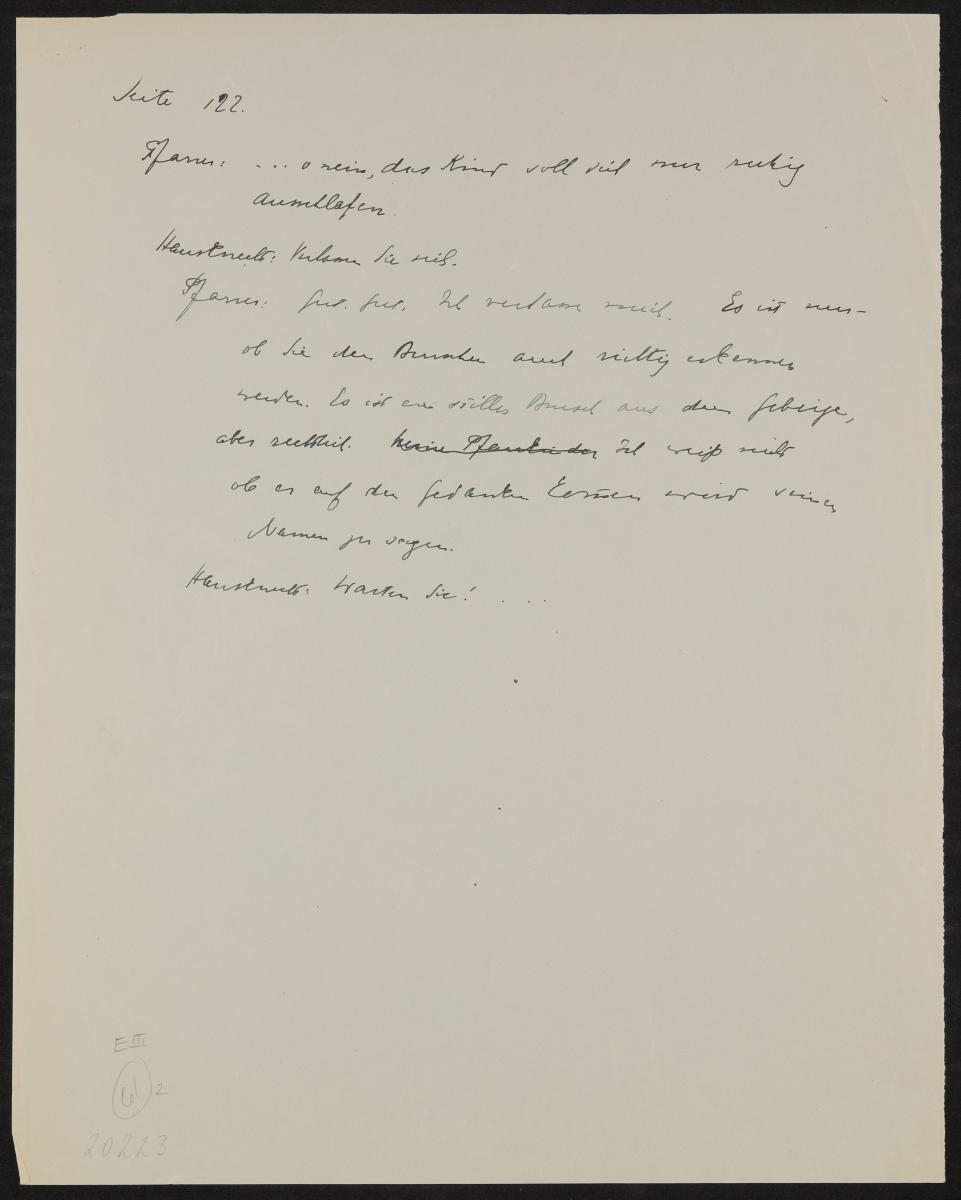 Seite 122.
Pfarrer: ... o nein, das Kind soll sich nur ruhig
ausschlafen.
Hausknecht: Verlassen Sie sich.
Pfarrer: Gut. Gut. Ich verlasse mich. Es ist nur –
ob Sie den Burschen auch richtig erkennen
werden. Es ist ein stilles Bursch aus dem Gebirge,
aber rechtlich. Keine Pfarrkinder Ich weiß nicht
ob er auf den Gedanken kommen wird seinen
Namen zu sagen.
Hausknecht: Warten Sie! ...
E III
61 2
20223